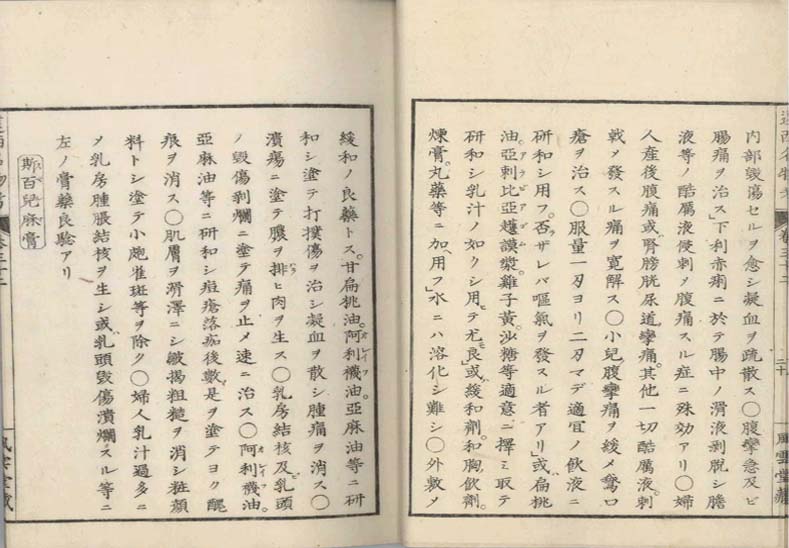 遠西名物考
卷三十二
二十
風雲堂藏
内部毀傷セルヲ愈シ凝血ヲ疏散ス○腹攣急及ビ
腸痛ヲ治ス」下利赤痢ニ於テ腸中ノ滑液剥脱シ膽
液等ノ酷厲液侵刺メ腹痛スル症ニ殊効アリ○婦
人産後腹痛或腎膀胱尿道攣痛其他一切酷厲液刺
戟メ發スル痛ヲ寛解ス○小兒腹攣痛ヲ緩メ鵞口
瘡ヲ治ス○服量一刃ヨリ二刃マデ適宜ノ飲液ニ
研和シ用フ否ザレバ嘔氣ヲ發スル者アリ」或扁桃
油亞刺比亞護謨漿雞子黄沙糖等適意ニ擇ミ取テ
研和シ乳汁ノ如クシ用テ尤良」或緩和劑和胸飲劑
煉膏丸藥等ニ加用フ」水ニハ溶化シ難シ○外敷メ
緩和ノ良藥トス甘扁桃油阿利襪油亞麻油等ニ研
和シ塗テ打撲傷ヲ治シ凝血ヲ散シ腫痛ヲ消ス○
潰瘍ニ塗テ膿ヲ排ヒ肉ヲ生ス○乳房結核及乳頭
ノ毀傷剥爛ニ塗テ痛ヲ止メ速ニ治ス○阿利襪油
亞麻油等ニ研和シ痘瘡落痂後數是ヲ塗テヨク醜
痕ヲ消ス○肌膚ヲ滑澤ニシ皺揭粗糙ヲ消シ粧顔
料トシ塗テ小皰雀斑等ヲ除ク○婦人乳汁過多ニ
メ乳房腫脹結核ヲ生シ或乳頭毀傷潰爛スル等ニ
左ノ膏藥良驗アリ
斯百兒麻膏
遠西名物考
卷三十二
風雲堂藏